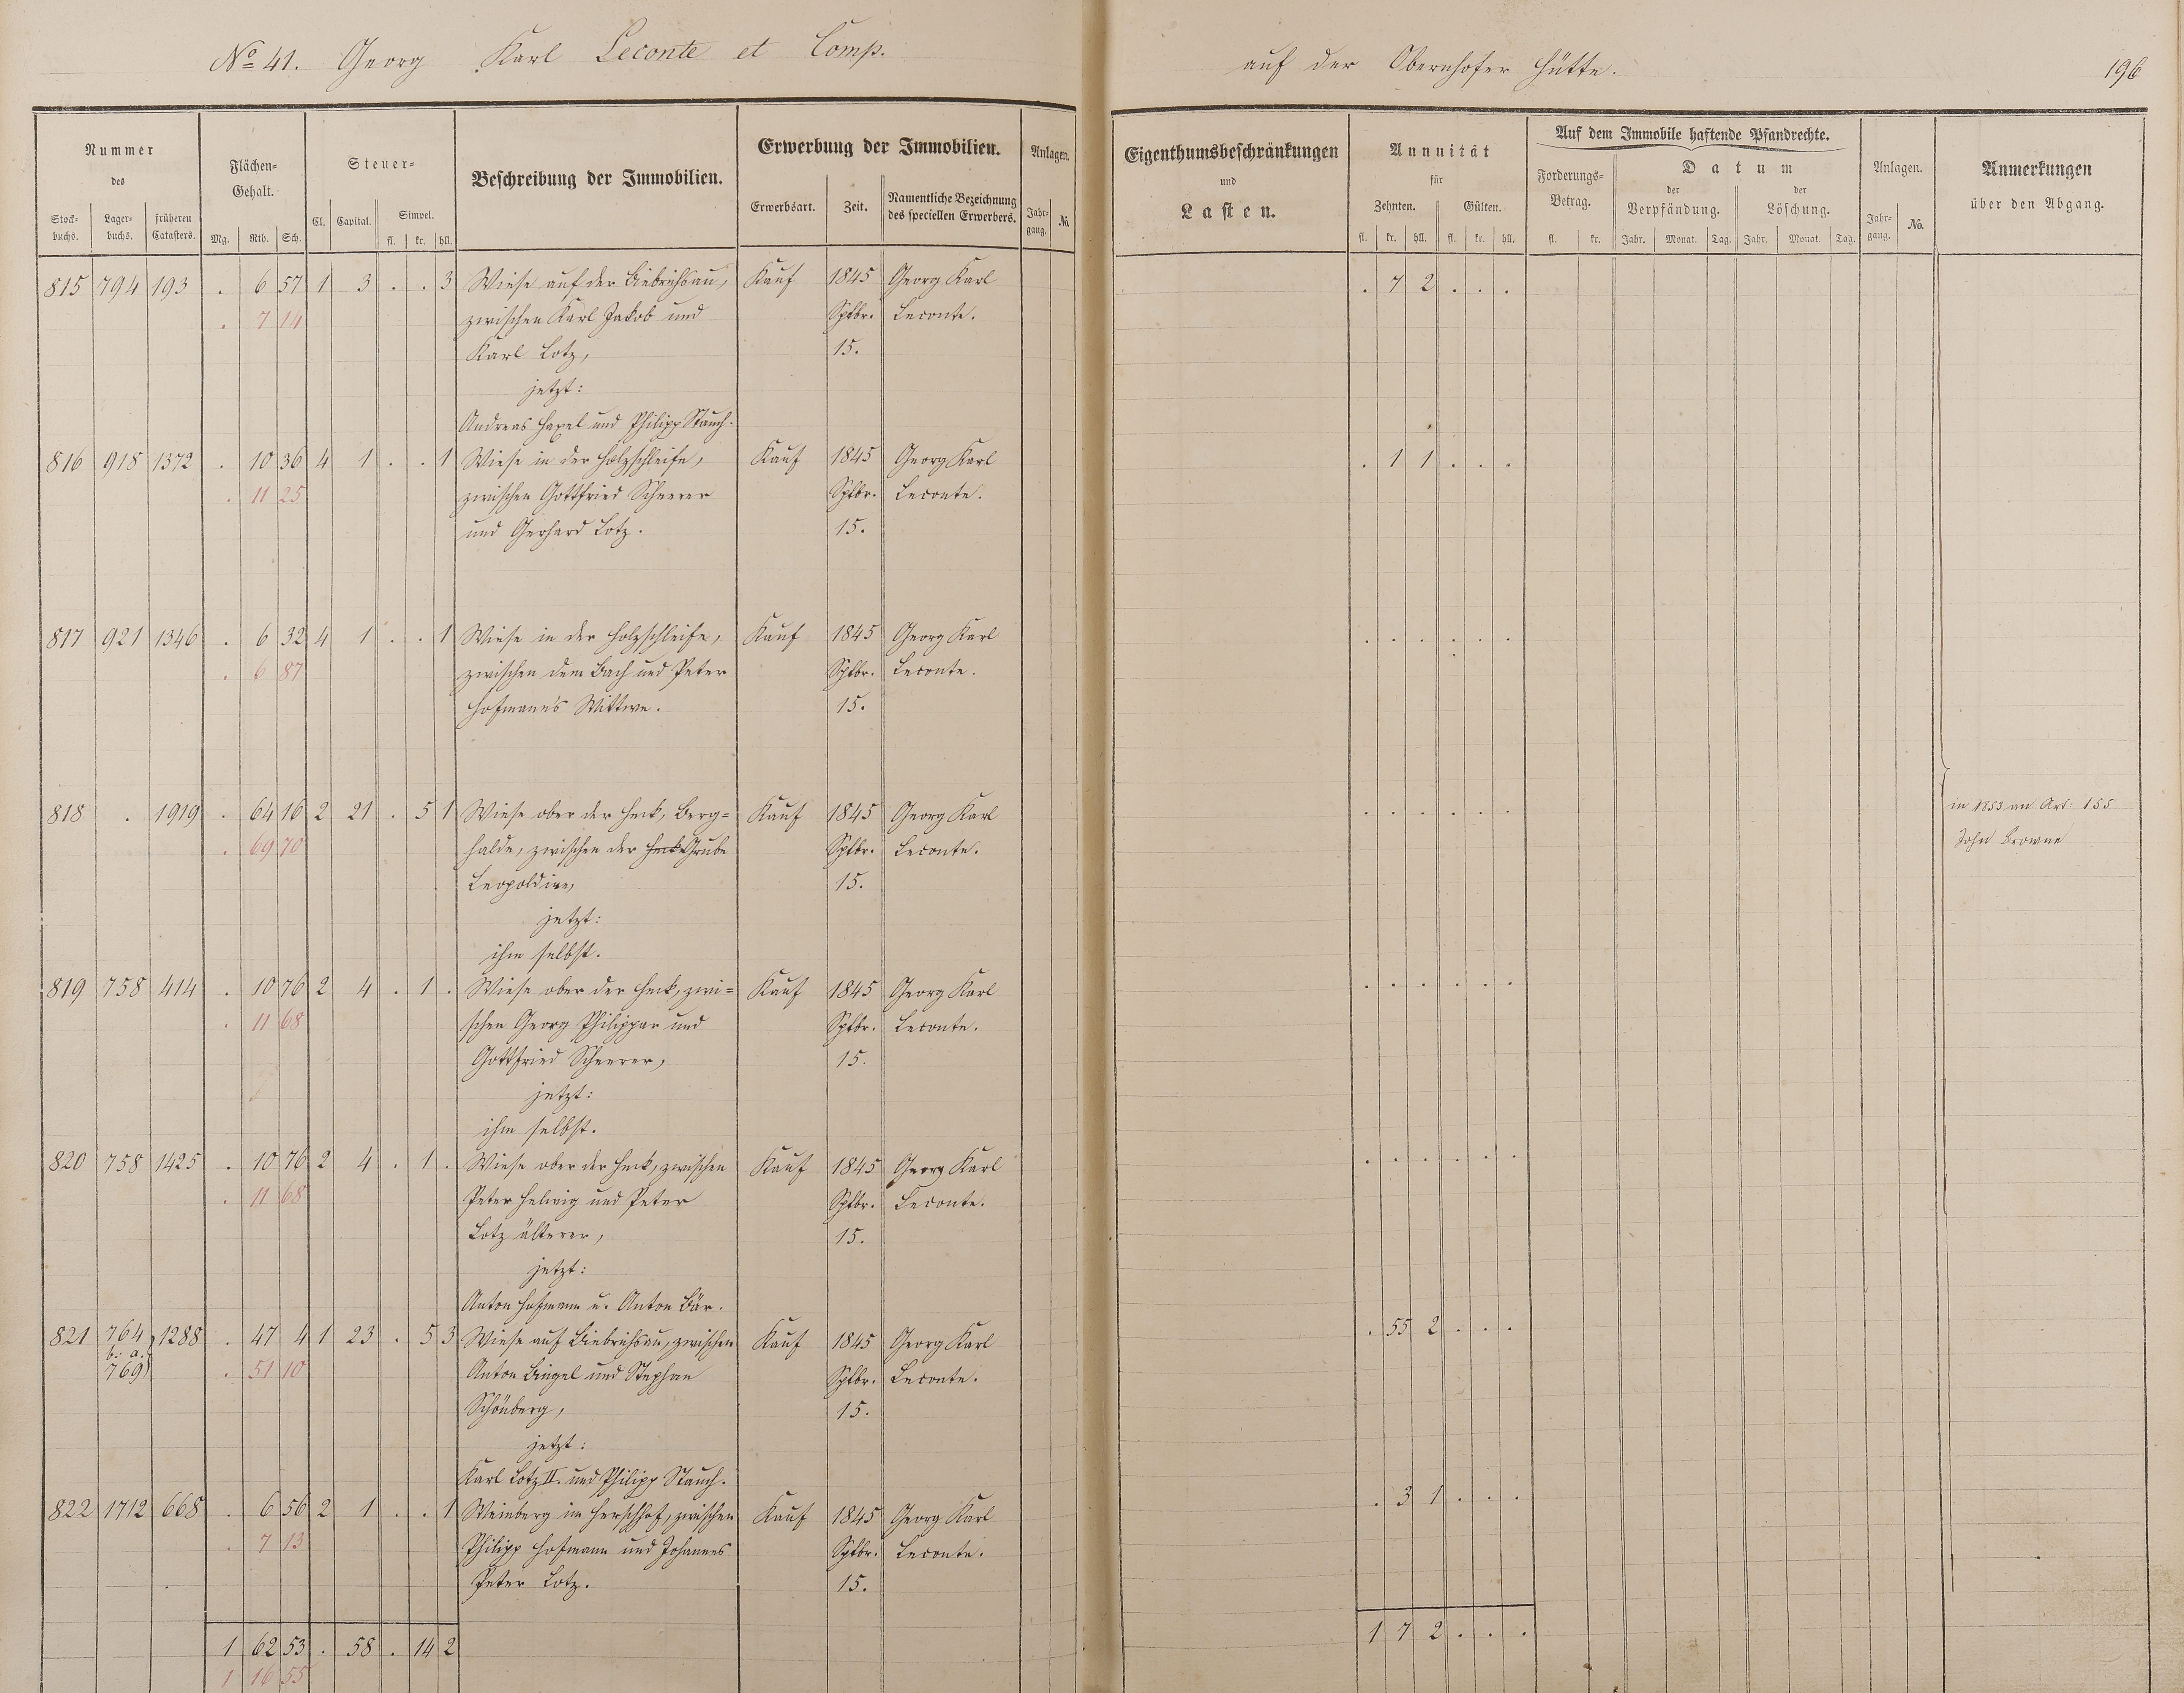 No 41. Georg Karl Leconte et Comp. auf der Obernhofer Hütte. 196
Nummer des
Stock-buchs. Lager-buchs. früheren Catasters.
Flächen-Gehalt.
Mg. Rth. Sch.
Steuer-
Cl. Capital. Simpel.
fl. kr. hll.
Beschreibung der Immobilien.
Erwerbung der Immobilien.
Erwerbsart. Zeit. Namentliche Bezeichnung des speciellen Erwerbers.
Anlagen.
Jahr-gang. No.
Eigenthumsbeschränkungen
und
Lasten.
Annuität
für
Zehnten. Gülten.
fl. kr. hll. fl. kr. hll.
Auf dem Immobile haftende Pfandrechte.
Forderungs-Betrag.
fl. kr.
Datum
der Verpfändung. der Löschung.
Jahr. Monat. Tag. Jahr. Monat. Tag.
Anlagen.
Jahr-gang. No.
Anmerkungen
über den Abgang.
815 794 193 . 6 57 1 3 . . 3 Wiese auf der Biebrichsau, Kauf 1845 Georg Karl . 7 2 . . .
. 7 14 zwischen Karl Jakob und Sptbr. Leconte.
Karl Lotz, 15.
jetzt:
Andreas Hapel und Philipp Stauch.
816 918 1372 . 10 36 4 1 . . 1 Wiese in der Holzschleife, Kauf 1845 Georg Karl . 1 1 . . .
. 11 25 zwischen Gottfried Scheerer Sptbr. Leconte.
und Gerhard Lotz. 15.
817 921 1346 . 6 32 4 1 . . 1 Wiese in der Holzschleife, Kauf 1845 Georg Karl . . . . . .
. 6 87 zwischen dem Bach und Peter Sptbr. Leconte.
Hofmann's Wittwe. 15.
818 . 1919 . 64 16 2 21 . 5 1 Wiese ober der Heck, Berg= Kauf 1845 Georg Karl . . . . . . in 1853 an Art. 155
. 69 70 halde, zwischen der Heck Grube Sptbr. Leconte. John Browne
Leopoldine, 15.
jetzt:
ihm selbst.
819 758 414 . 10 76 2 4 . 1 . Wiese ober der Heck, zwi= Kauf 1845 Georg Karl . . . . . .
. 11 68 schen Georg Philippar und Sptbr. Leconte.
Gottfried Scheerer, 15.
jetzt:
ihm selbst.
820 758 1425 . 10 76 2 4 . 1 . Wiese ober der Heck, zwischen Kauf 1845 Georg Karl . . . . . .
. 11 68 Peter Helwig und Peter Sptbr. Leconte.
Lotz älterer, 15.
jetzt:
Anton Hofmann u. Anton Bär.
821 764 1288 . 47 4 1 23 . 5 3 Wiese auf Biebrichsau, zwischen Kauf 1845 Georg Karl . 55 2 . . .
b. a. 769 . 51 10 Anton Bingel und Stephan Sptbr. Leconte.
Schönberg, 15.
jetzt:
Karl Lotz II. und Philipp Stauch.
822 1712 668 . 6 56 2 1 . . 1 Weinberg im Herschhof, zwischen Kauf 1845 Georg Karl . 3 1 . . .
. 7 13 Philipp Hofmann und Johannes Sptbr. Leconte.
Peter Lotz. 15.
1 62 53 . 58 . 14 2 1 7 2 . . .
1 16 55